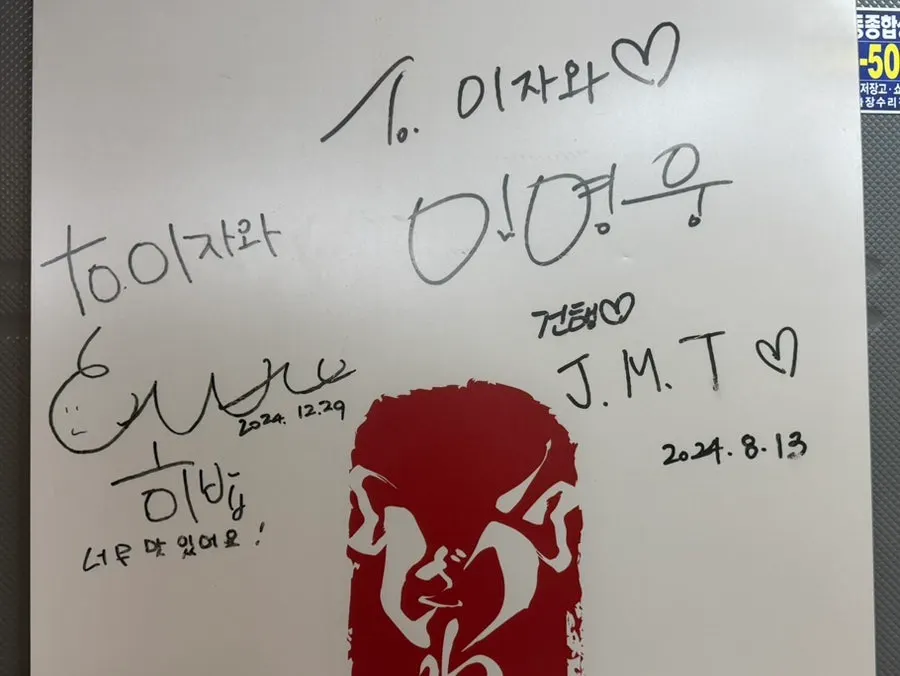 To. 이자와♡
임영웅
건행♡
J.M.T ♡
2024.8.13
to.이자와
2024.12.29
히밥
너무 맛있어요!
종합
-50
저장고·쇼
장수리